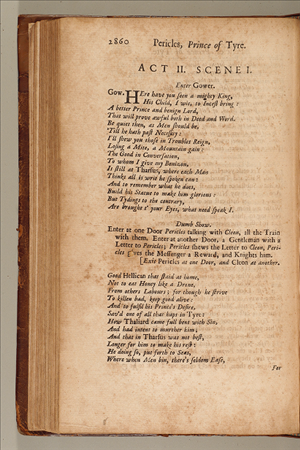 2860 Pericles, Prince of Tyre.
ACT II. SCENE I.
Enter Gower.
Gow. HEre have you seen a mighty King,
His Child, I wis, to Incest bring:
A better Prince and benign Lord,
That will prove awful both in Deed and Word.
Be quiet then, as Men should be,
'Till he hath past Necessity:
I'll shew you those in Troubles Reign,
Losing a Mite, a Mountain gain:
The Good in Conversation,
To whom I give my Benizon,
Is still at Tharsus, where each Man
Thinks all is writ he spoken can:
And to remember what he does,
Build his Statue to make him glorious:
But Tydings to the contrary,
Are brought t' your Eyes, what need speak I.
Dumb Show.
Enter at one Door Pericles talking with Cleon, all the Train
with them. Enter at another Door, a Gentleman with a
Letter to Pericles; Pericles shews the Letter to Cleon, Peri-
cles gives the Messenger a Reward, and Knights him.
[Exit Pericles at one Door, and Cleon at another.
Good Hellican that staid at home,
Not to eat Honey like a Drone,
From others Labours; for though he strive
To killen bad, keep good alive:
And to fulfil his Prince's Desire,
Sav'd one of all that haps in Tyre:
How Thaliard came full bent with Sin,
And had intent to murther him;
And that in Tharsus was not best,
Longer for him to make his rest:
He doing so, put forth to Seas,
Where when Men bin, there's seldom Ease,
For